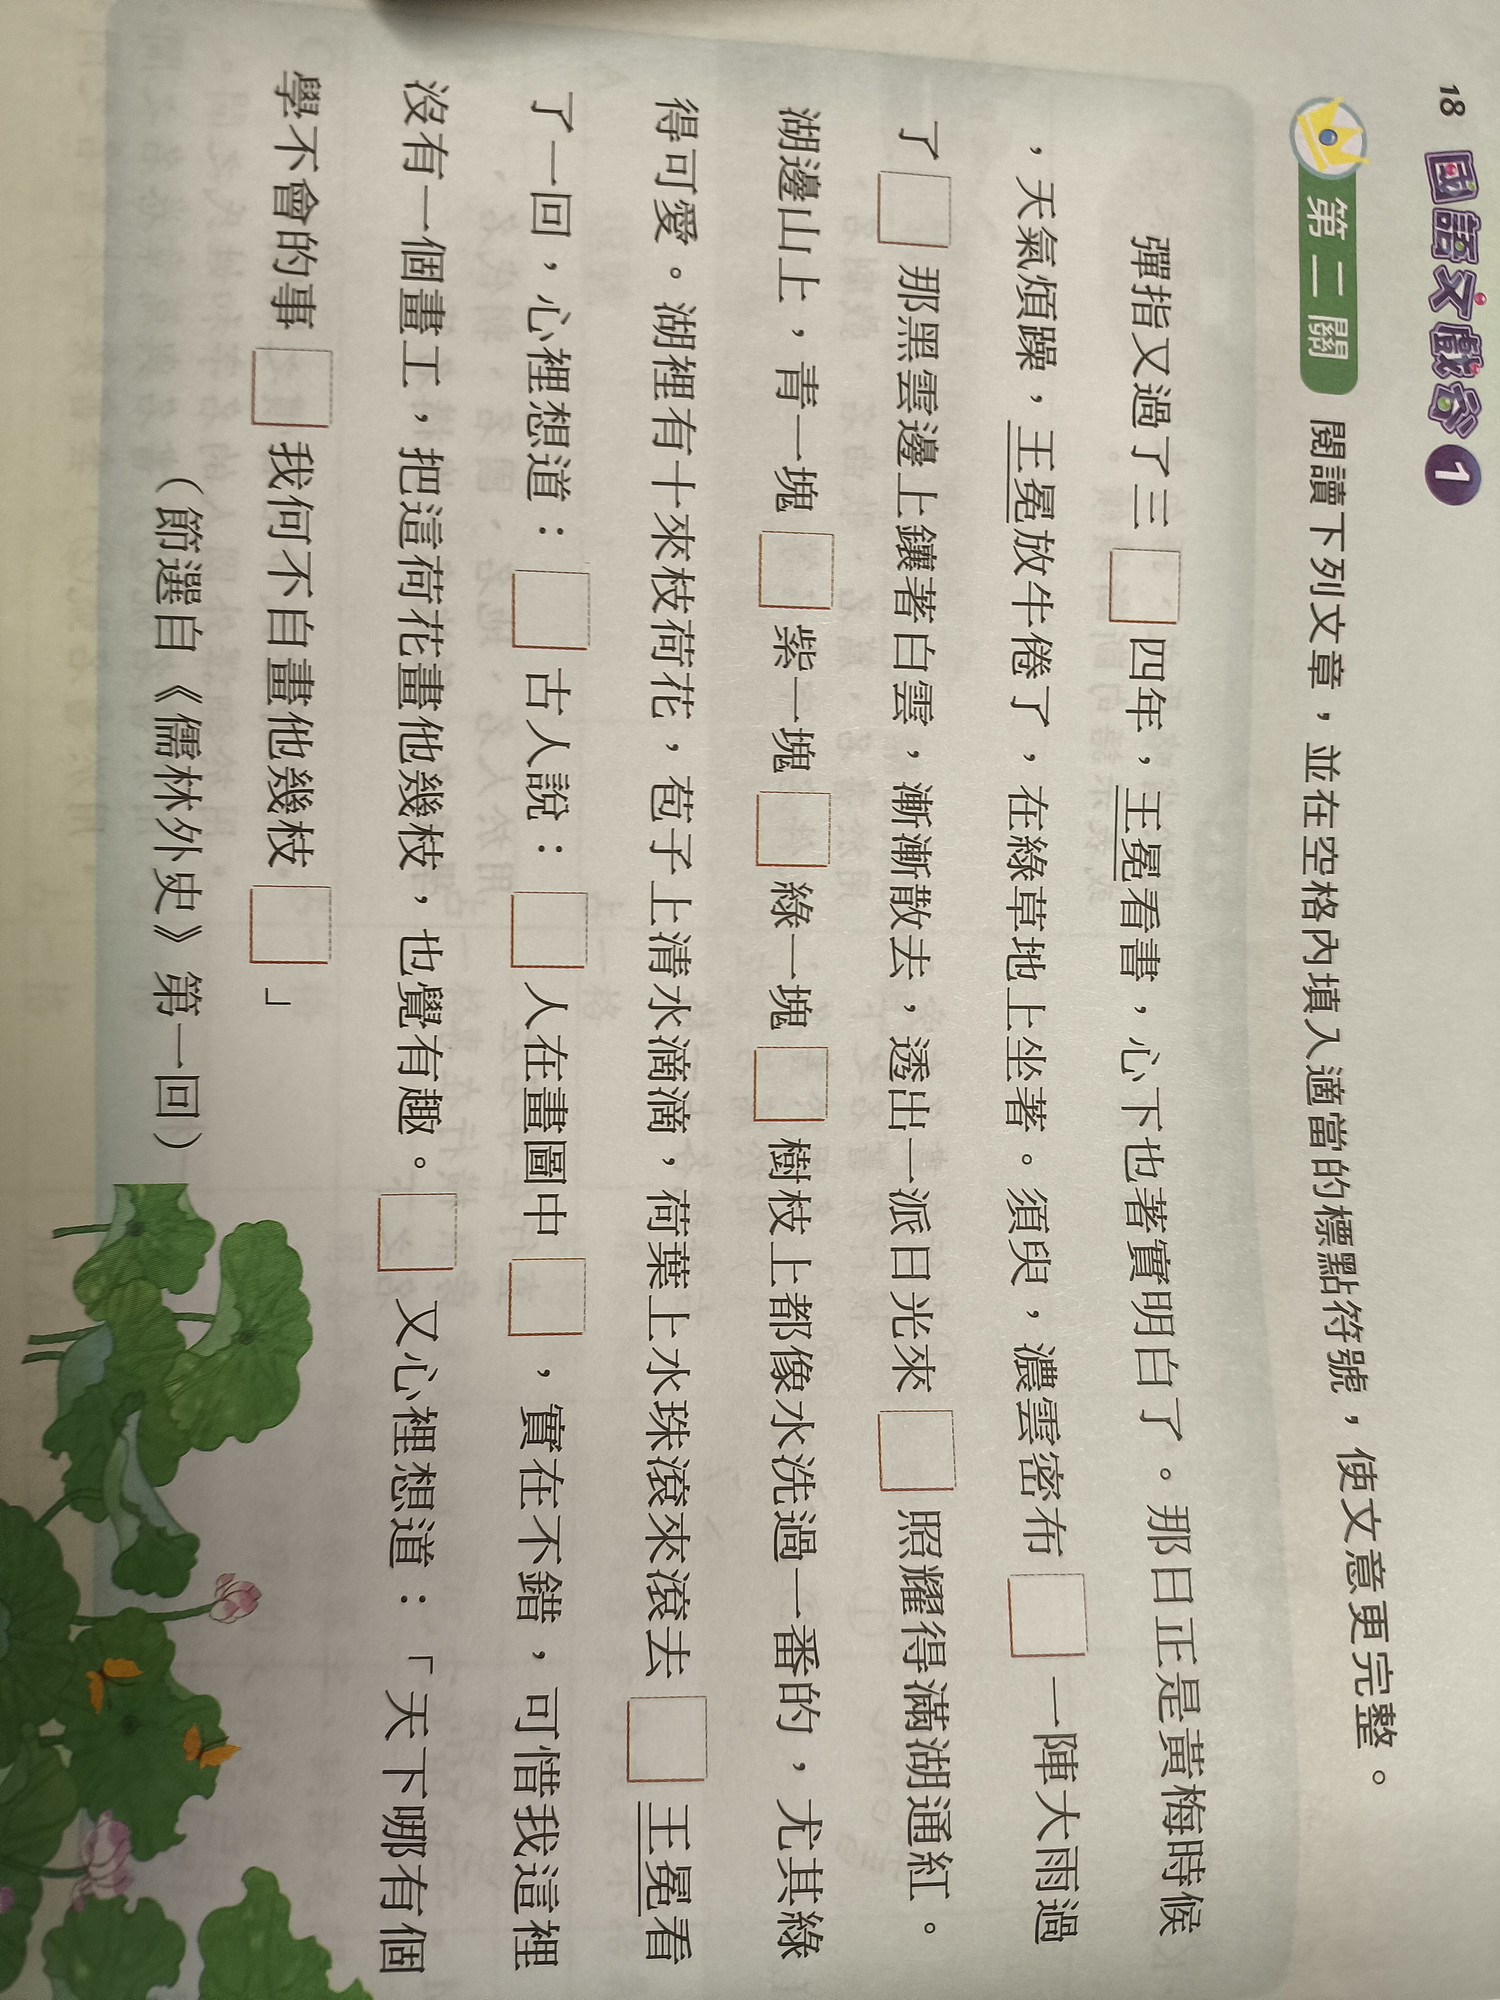 18 國語文戲谷 1
第二關 閱讀下列文章，並在空格內填入適當的標點符號，使文意更完整。
彈指又過了三□四年，王冕看書，心下也著實明白了。那日正是黃梅時候
，天氣煩躁，王冕放牛倦了，在綠草地上坐著。須臾，濃雲密布□一陣大雨過
了□那黑雲邊上鑲著白雲，漸漸散去，透出一派日光來□照耀得滿湖通紅。
湖邊山上，青一塊□紫一塊□綠一塊□樹枝上都像水洗過一番的，尤其綠
得可愛。湖裡有十來枝荷花，苞子上清水滴滴，荷葉上水珠滾來滾去□王冕看
了一回，心裡想道：□古人說：□人在畫圖中□，實在不錯，可惜我這裡
沒有一個畫工，把這荷花畫他幾枝，也覺有趣。□又心裡想道：「天下哪有個
學不會的事□我何不自畫他幾枝□」
（節選自《儒林外史》第一回）